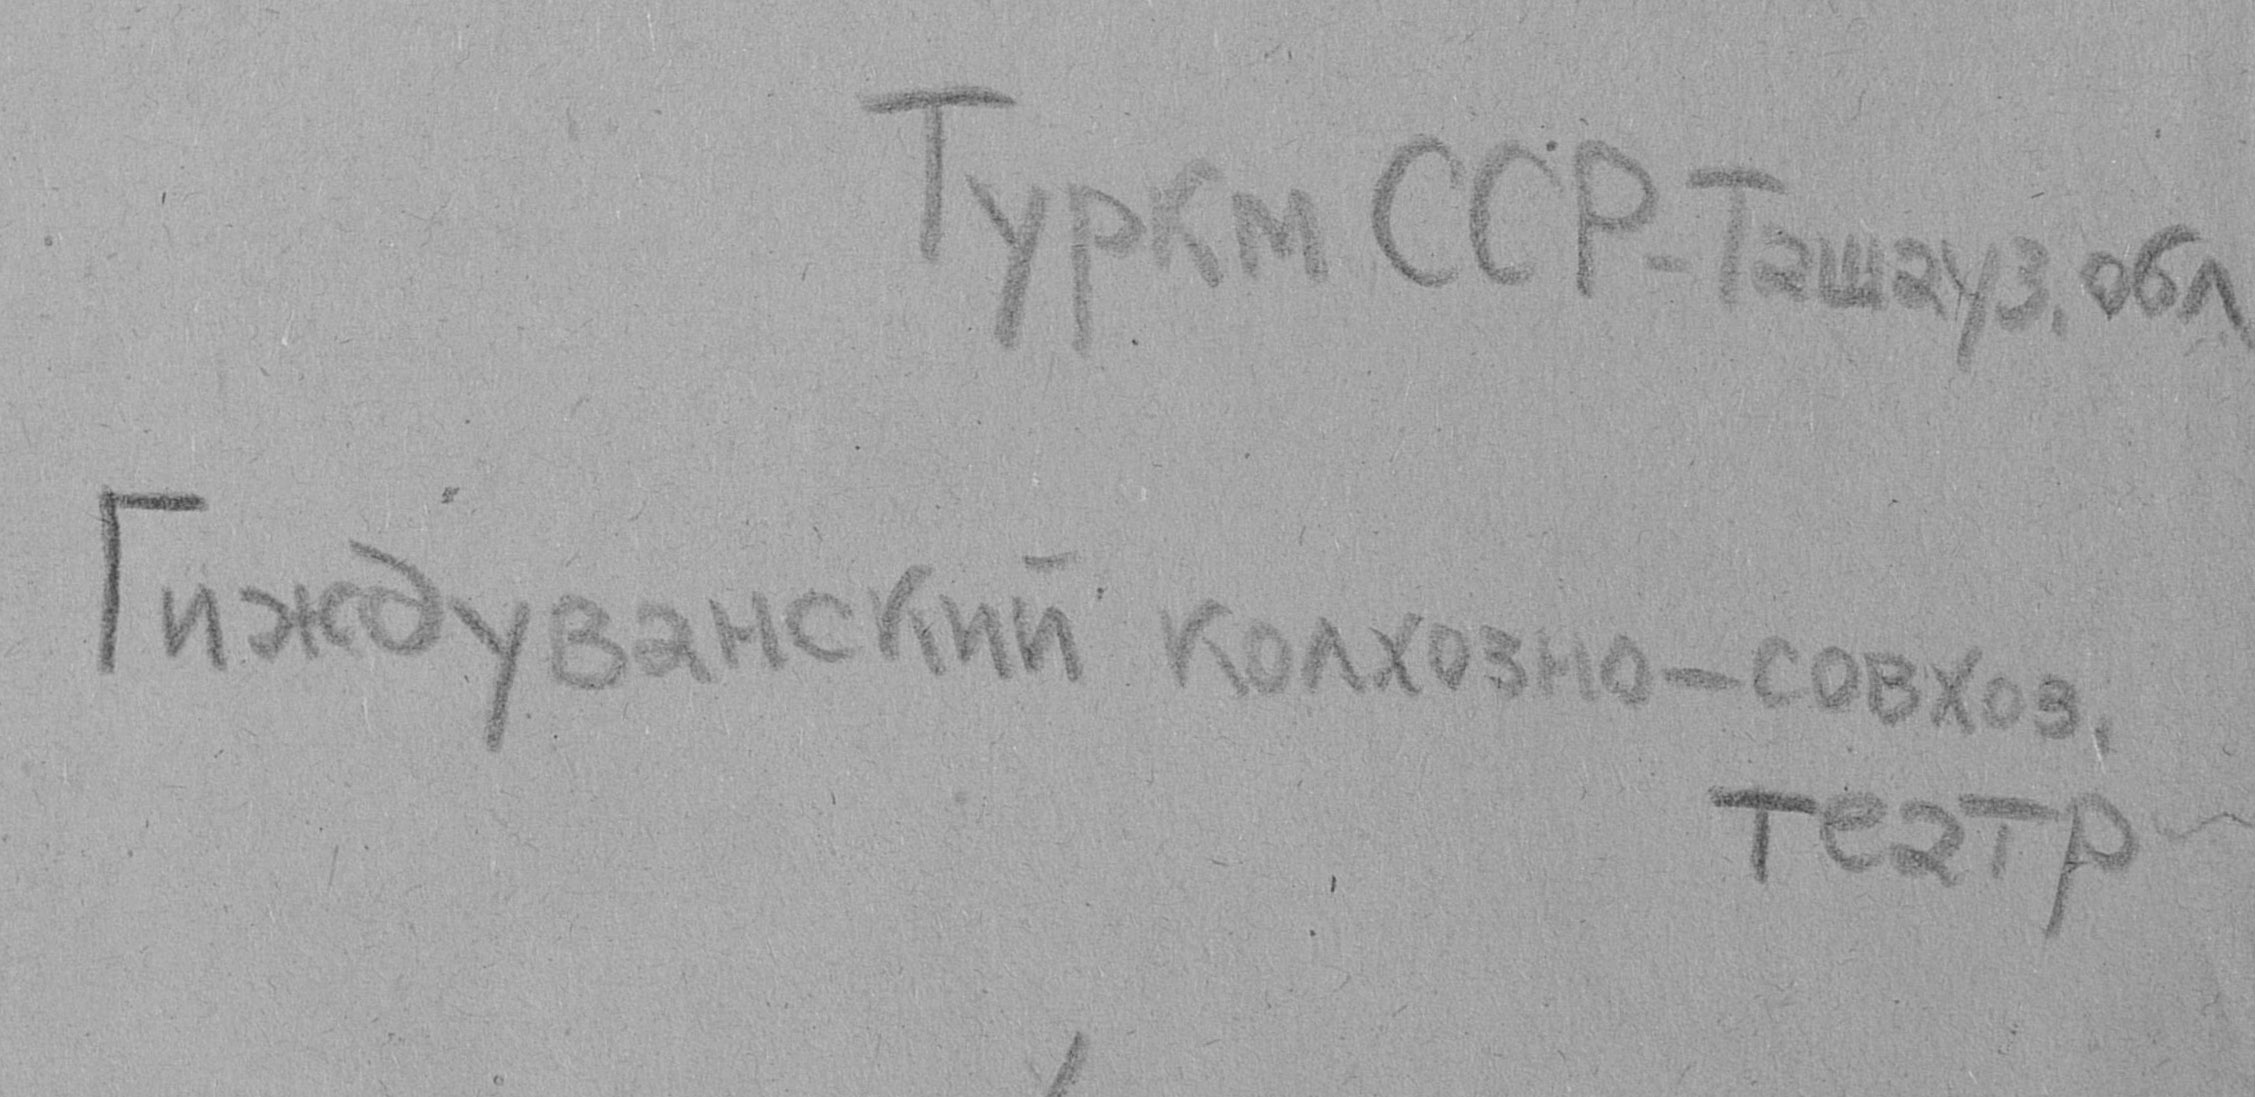 Туркм ССР-Ташауз. обл
Гиждуванский колхозно-совхоз.
театр